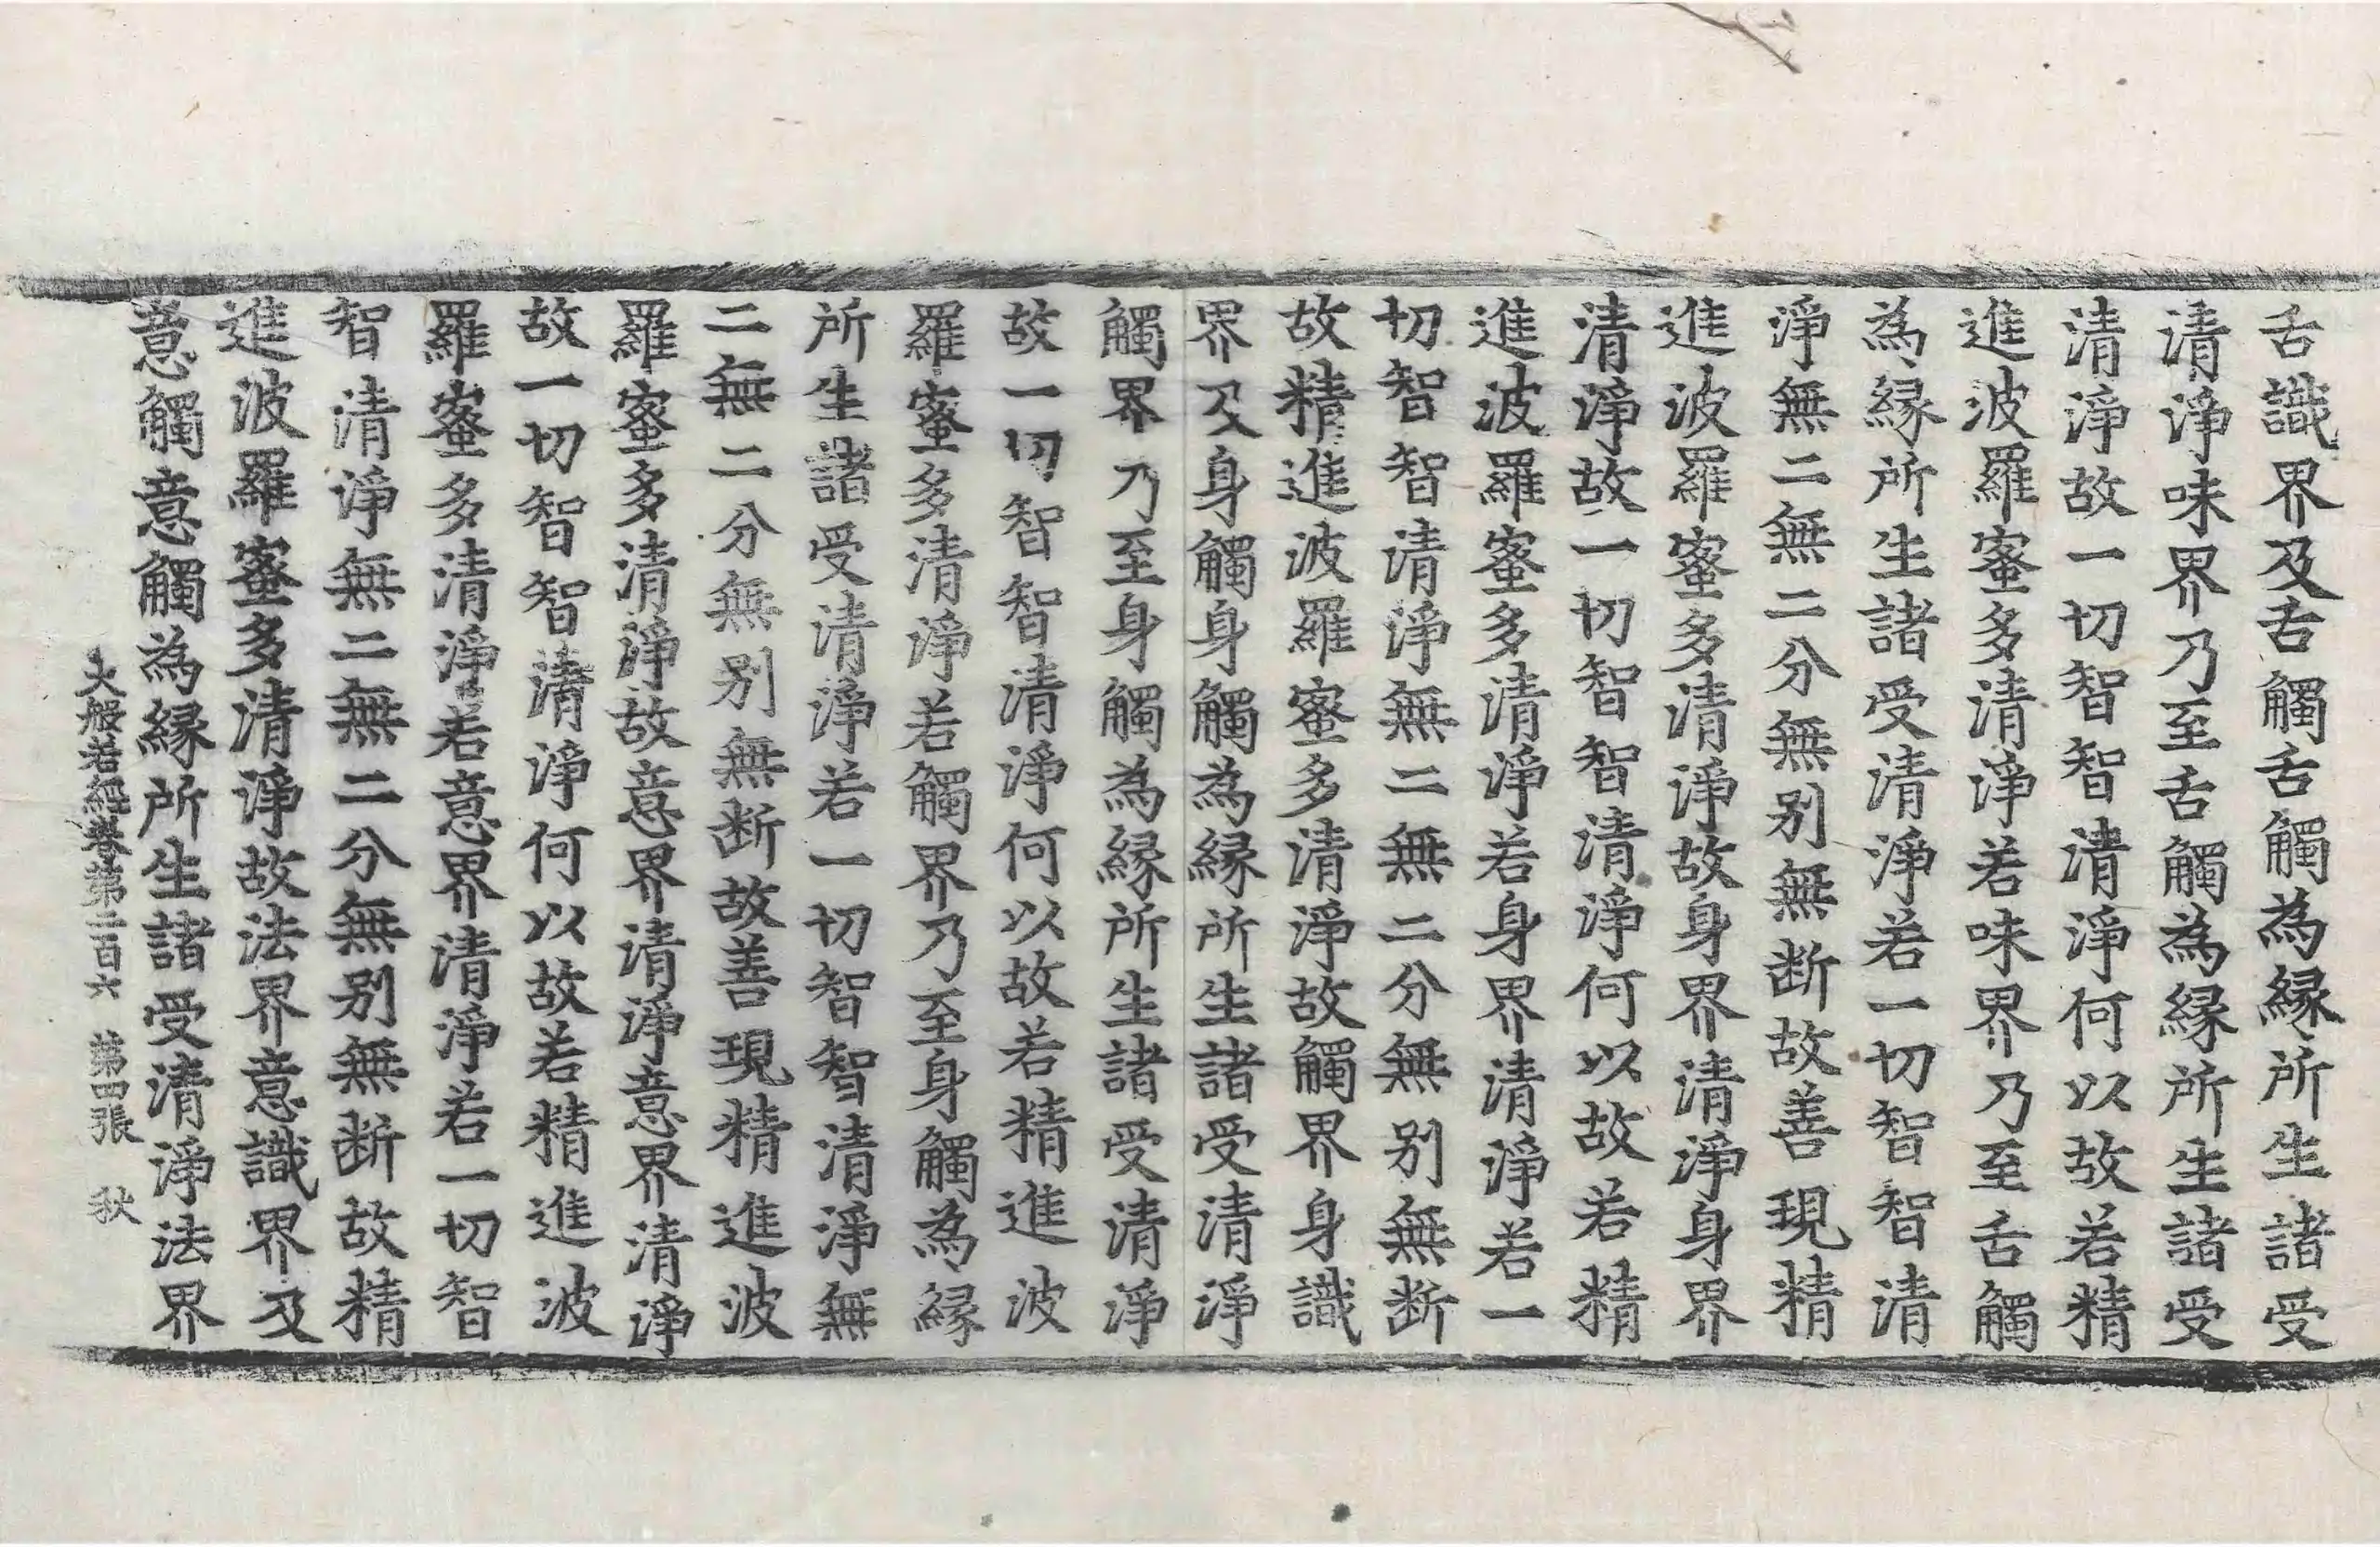 舌識界及舌觸舌觸為縁所生諸受
清淨味界乃至舌觸為縁所生諸受
清淨故一切智智清淨何以故若精
進波羅蜜多清淨若味界乃至舌觸
為縁所生諸受清淨若一切智智清
淨無二無二分無别無断故善現精
進波羅蜜多清淨故身界清淨身界
清淨故一切智智清淨何以故若精
進波羅蜜多清淨若身界清淨若一
切智智清淨無二無二分無别無断
故精進波羅蜜多清淨故觸界身識
界及身觸身觸為縁所生諸受清淨
觸界乃至身觸為縁所生諸受清淨
故一切智智清淨何以故若精進波
羅蜜多清淨若觸界乃至身觸為縁
所生諸受清淨若一切智智清淨無
二無二分無别無断故善現精進波
羅蜜多清淨故意界清淨意界清淨
故一切智智清淨何以故若精進波
羅蜜多清淨若意界清淨若一切智
智清淨無二無二分無别無断故精
進波羅蜜多清淨故法界意識界及
意觸意觸為縁所生諸受清淨法界
大般若經卷第二百六　第四張　秋